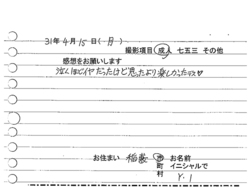 31年4月15日(月)
撮影項目 成人 七五三 その他
感想をお願いします
けどイヤだったけど思ったより楽しかったです♡
お住まい 稲葉 市町村 お名前イニシャルで Y.I